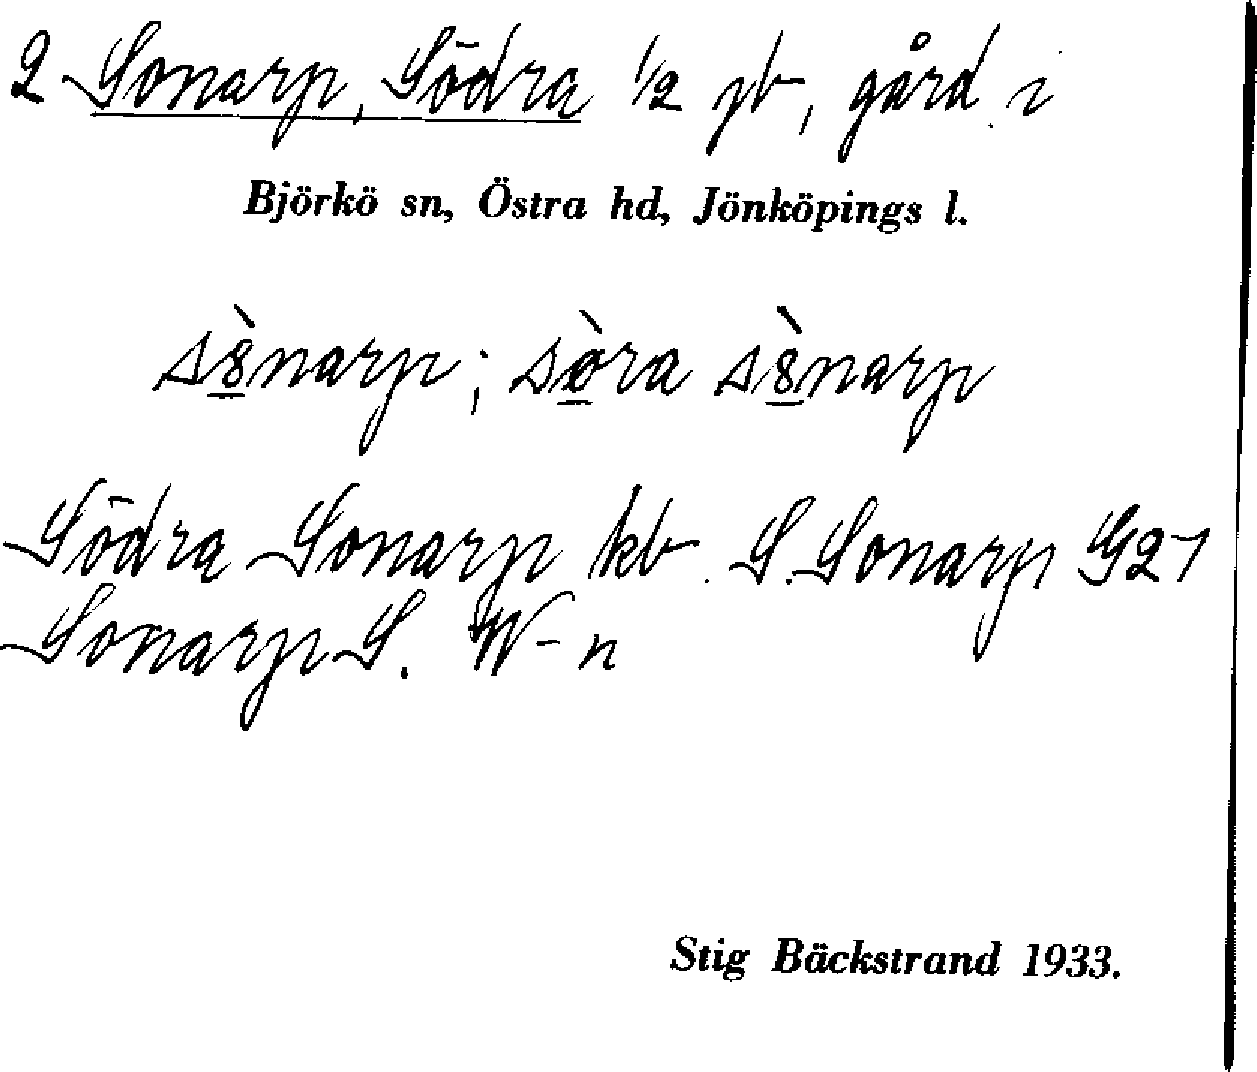 2 Sonarp, Södra 1/2 jb, gård i
Björkö sn, Östra hd, Jönköpings l.
s8̲̀narp; sò̲ra s8̲̀narp
Södra Sonarp kb. S. Sonarp G27
Sonarp S. W-n
Stig Bäckstrand 1933.